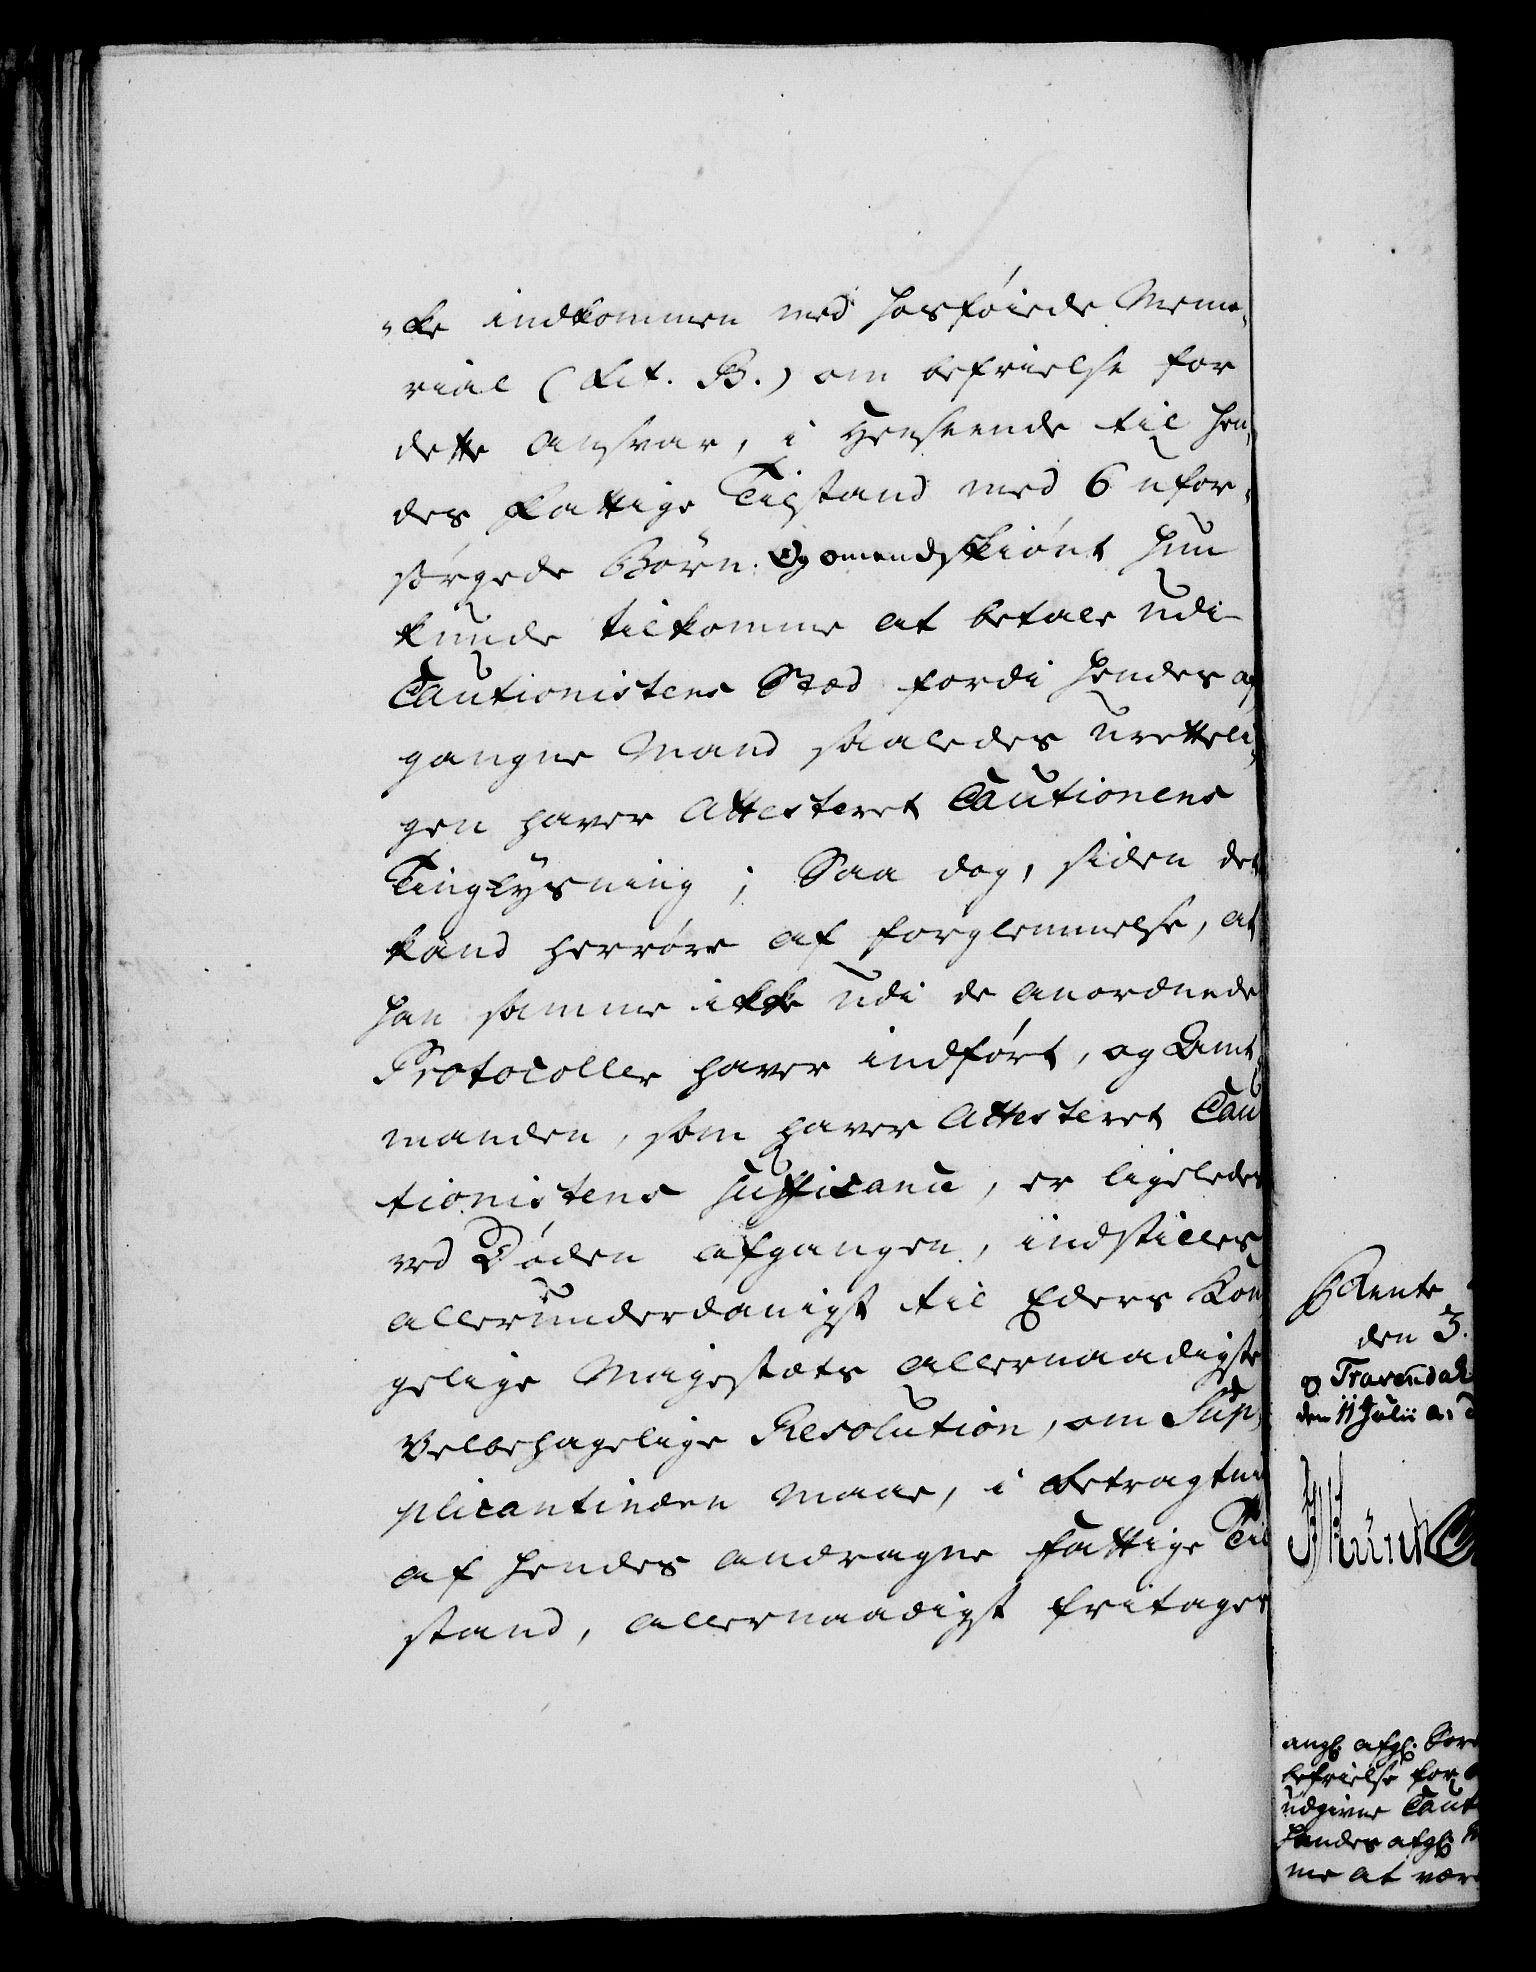 „cke indkommen med hosføiede Memo„
rial (Lit. B.) om befrielse for
dette Ansvar, i Henseende til hen„
des Fattige Tilstand med 6 ufor„
sørgede Børn. Og omendskiønt hun
kunde tilkomme at betale udi
Cautionistens Sted fordi hendes af
gangne Mand saaledes uretteli„
gen haver Attesteret Cautionens
Tinglysning; Saa dog, siden det
kand herrøre af forglemmelse, at
han samme ikke udi de anordnede
Protocoller haver indført, og Amt„
manden, som haver Attesteret Cau
tionistens Sufficance, er ligeledes
ved Døden afgangen, indstilles
allerunderdanigst til Eders Kon
gelige Majestæts allernaadigste
Velbehagelige Resolution, om Sup„
plicantinden maae, i betragtni
af hendes andragne fattige Til
stand, allernaadigst fritages
Rente
den 3.
Travendahl
den 11 Julii a.
angl. afgl.
befrielse for
udgivne Caut
hendes afgl.
me at vær